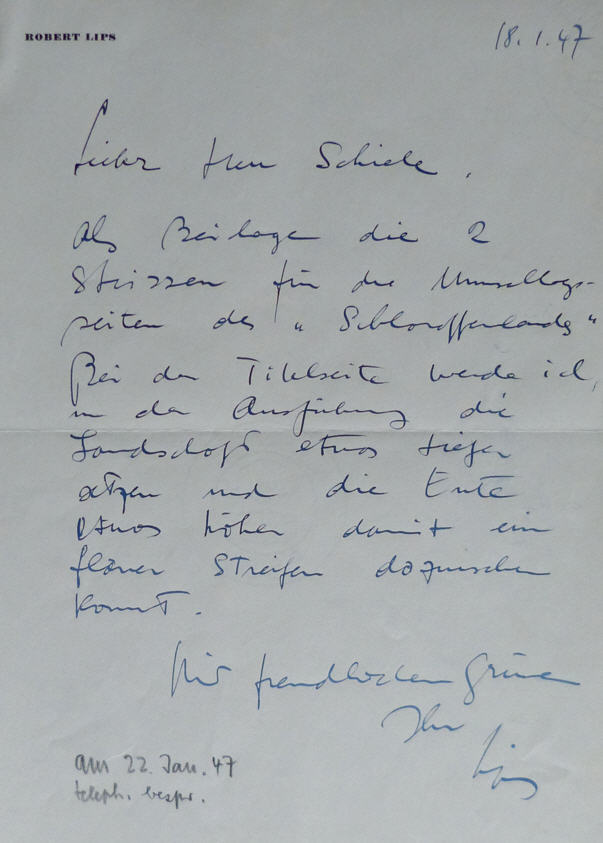 ROBERT LIPS
18.1.47
Lieber Herr Schiele,
als Beilagen die 2
Skizzen für die Umschlags-
seiten des "Schlaraffenlands"
Bei der Titelseite werde ich,
in der Ausführung die
Landschaft etwas tiefer
setzen und die Ente
etwas höher damit ein
Streifen dazwischen
kommt.
Mit freundlichen Grüssen
Ihr
Lips
am 22. Jan. 47
teleph. bespr.